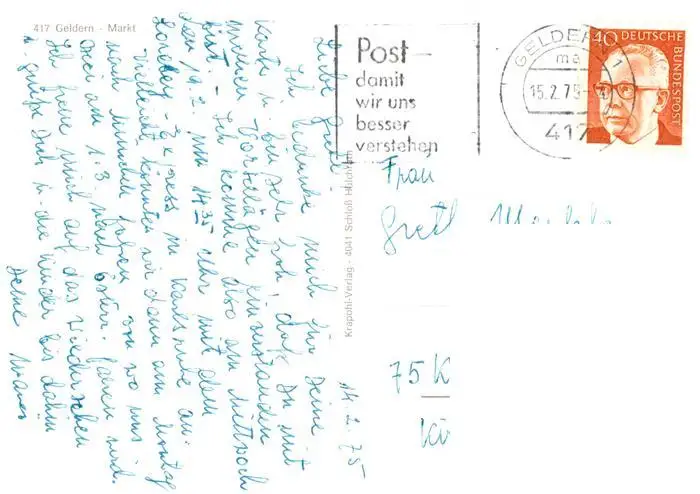 417 Geldern - Markt
14.2.75
Liebe Gretl.
Ich bedanke mich für Deine
Karte u. bin sehr froh, daß Du mit
meinen Vorschlägen einverstanden
bist - Ich komme also am Mittwoch
den 19.2. um 14.35 Uhr mit dem
Loreley-Express in Karlsruhe an.
Vielleicht könnten wir dann am Montag
nach München fahren von wo uns
am 1.3. nach Österr. fahren wird.
Ich freue mich auf das Wiedersehen
u. grüße Dich u. die Kinder bis dahin
Deine
Krapohl-Verlag - 4041 Schloß Hülchrath
Post -
damit
wir uns
besser
verstehen
GELDERN 1
ma
15.2.75
417
40 DEUTSCHE BUNDESPOST
Frau
Gretl
75 K